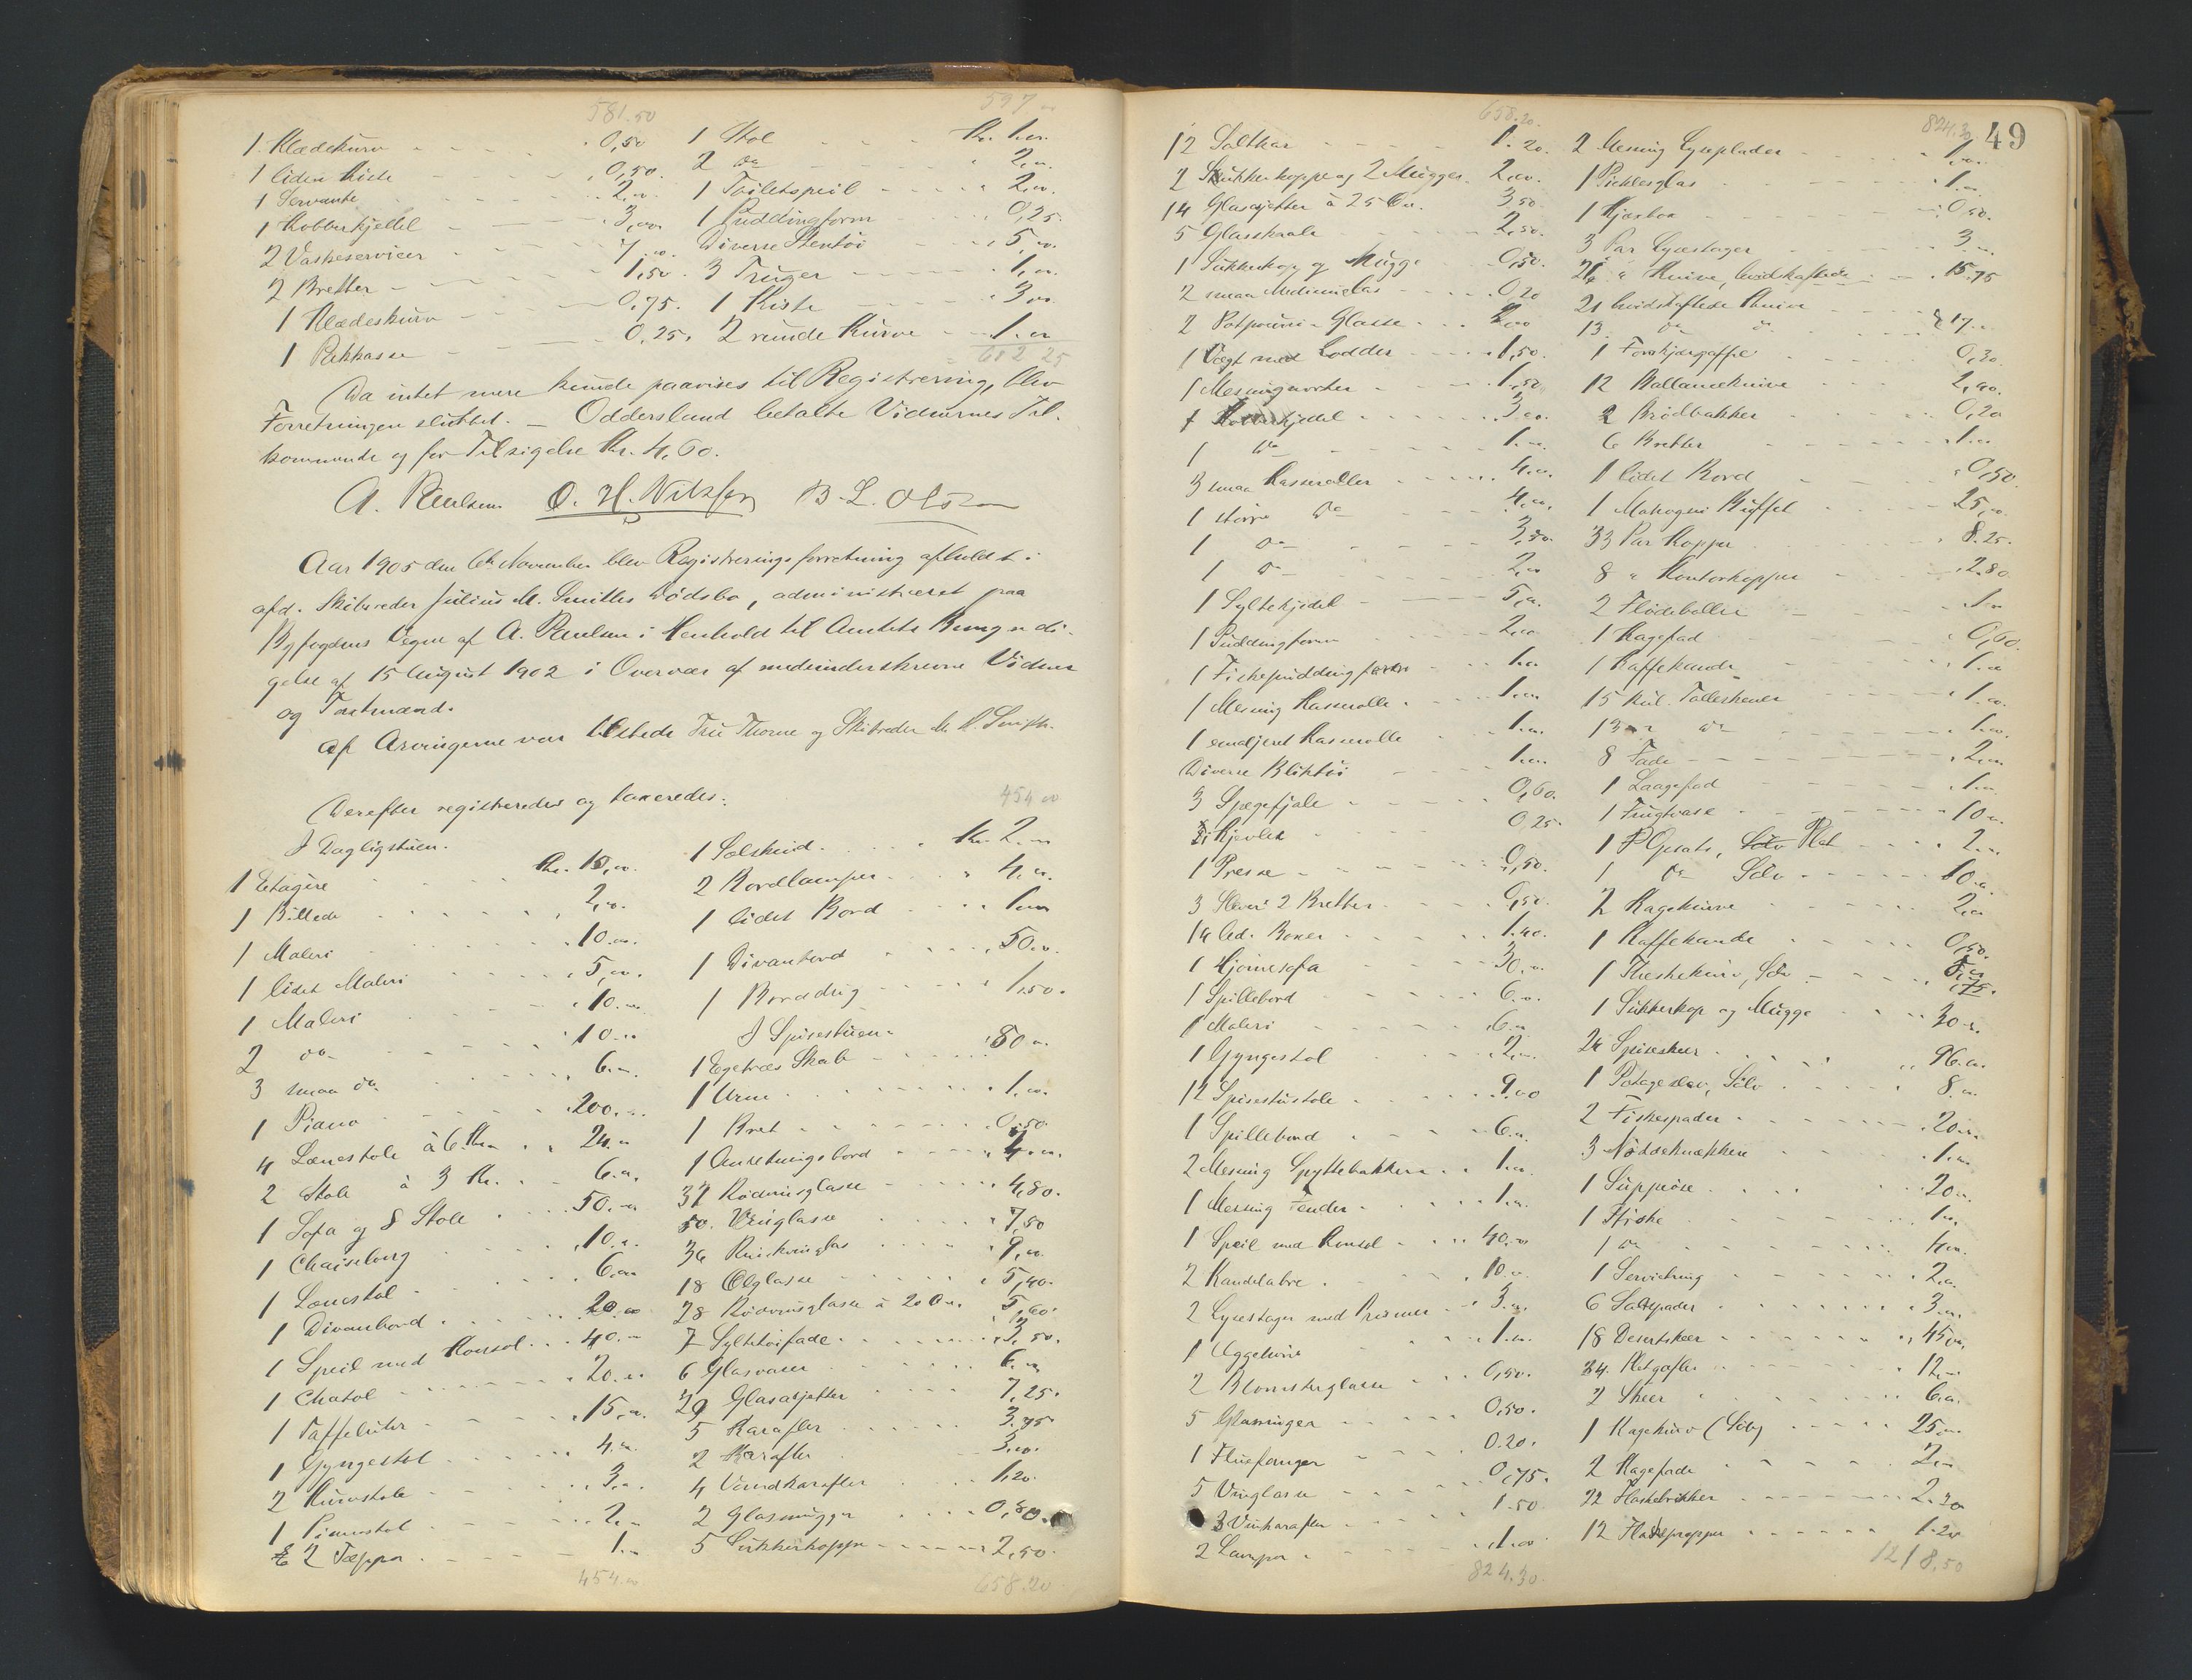 581.50
1 Klædekurv 0,50
1 liden Kiste 0,50.
1 Servante 2,00.
1 Kobberkjettel 3,00
2 Vaskeservicer 7,00.
2 Bretter 1,50.
1 Klædeskurv 0,75.
1 Pakkasse 0,25.
597 00
1 Stol Kr. 1.00
2 do 2,00
1 Toiletspeil 2,00.
1 Puddingform 0,25.
Diverse Stentøi 5,00.
3 Truger 1,00.
1 Kiste 3,00.
2 runde Kurve 1.00
612 25
Da intet mere kunde paavises til Registrering, blev
Forretningen sluttet. — Oddersland betalte Vidnernes Til-
kommende og for Tilsigelse Kr. 4,60.
A. Paulsen O. H. Nilsen B. L. Olsen
Aar 1905 den 6te November blev Registreringsforretning afholdt i
afd. Skibsreder Julius M. Smiths Dødsbo, administreret paa
Byfogdens Vegne af A. Paulsen i Henhold til Amtets Bemyndi-
gelse af 15 August 1902 i Overvær af medunderskrevne Vidner
og Taxtmænd.
Af Arvingerne var tilstede Fru Thorne og Skibsreder M. Smith.
Derefter registreredes og taxeredes:
I Dagligstuen.
1 Etagere Kr. 15,00.
1 Billede 2,00.
1 Maleri 10.00.
1 lidet Maleri 5,00.
1 Maleri 10.00
2 do 10.00
3 smaa do 6.00.
1 Piano 200.00
4 Lænestole à 6 Kr. 24.00
2 Stole à 3 Kr. 6.00.
1 Sofa og 8 Stole 50.00
1 Chaiselong 10.00.
1 Lænestol 6.00
1 Divanbord 20.00
1 Speil med Konsol 40.00
1 Chatol 20.00
1 Taffeluhr 15,00.
1 Gyngestol 4.00
2 Kurvstole 3.00.
1 Pinnestol 2.00
2 Tæpper 1.00
454.00
454 00
1 Sælskind Kr. 2.00
2 Bordlamper 4.00.
1 lidet Bord 1.00
1 Divanbord 50.00.
1 Borddug 1,50.
I Spisestuen.
1 Egetræs Skab 80 00.
1 Urne 1.00.
1 Bret 0,50
1 Anretningsbord 4.00.
32 Rødvinsglasse 4,80.
50. Vinglasse 7,50
36 9,00.
18 Ølglasse 5,40.
28 Rødvinsglasse à 20 Øre 5,60.
7 Syltetøifade 3,50.
6 Glasvaser 6.00
29 Glasasjetter 7,25.
5 Karafler 3.75.
2 Karafler 3.00.
4 Vandkarafler 1,20.
2 Glasmugger 0,80.
5 Sukkerkopper 2,50.
658.20
658.20.
12 Saltkar 1.20.
2 Sukkerkopper og 2 Mugger 2,00.
14 Glasasjetter à 25 Øre. 3,50
5 Glasskaale 2,50.
1 Sukkerkop og Mugge 0,50.
2 smaa Medicinglas 0,20
2 Potpourri-Glasse 2,00
1 Vægt med Lodder 1,50.
1 Messingmorter 1,50
1 Kobberkjedel 3 00.
1 do 1.00.
3 smaa Kasseroller 4.00.
1 større do 4,00.
1 do 3,50.
1 do 2,00
1 Syltekjedel 5,00.
1 Puddingform 2,00
1 Fiskepuddingform 1.00
1 Messing Kasserolle 1.00
1 emaljeret Kasserolle 1.00.
Diverse Bliktøi 1.00.
3 Spegefjæle 0,60.
2 Kjevler 0,25.
1 Presse 0,50.
3 Sleve 2 Bretter 0,50.
14 Bokser 1.40.
1 Hjørnesofa 30.00.
1 Spillebord 6.00.
1 Maleri 6.00
1 Gyngestol 2.00
12 Spisestuestole 9.00
1 Spillebord 6.00.
2 Messing Spyttebakker 1.00.
1 Messing Fender 1.00.
1 Speil med Konsol 40.00
2 Kandelabre 10 00.
2 Lysestager med Prismer 3.00.
1 Æggekurv 1.00.
2 Blomsterglasse 0,50.
5 Glasringer 0,50.
1 Fluefanger 0.20.
5 Vinglasse 0,75.
3 Vinkarafler 1.50
2 Lamper 1.00
824.30.
824.30
49
2 Messing Lyseplader 1,00.
1 Picklesglas 1.00
1 0,50.
3 Par Lysestager 3.00
21 " Knive, hvidskaftede 15.75
21 hvidskaftede Knive
13 do do 17.00
1 Forskjærgaffel 0,20
12 Ballanceknive 2,40.
2 Brødbakker 0,20
6 Bretter 1.00
1 lidet Bord 0,50.
1 Mahogni Buffet 25,00.
33 Par Kopper 8.25.
8 " Kontorkopper 2.80.
2 Flødeboller 1.00
1 Kagefad 0,60.
1 Kaffekande 1.00
15 1.00.
13 do 1.00.
8 Fade 2.00
1 Laagefad 1.00.
1 Frugtvase 10 00.
1 Opsats, Plet 2.00.
1 do Sølv 10.00.
2 Kagekurve 2,00
1 Kaffekande 0,50.
1 Theskekurv, Sølv
1 Sukkerkop og Mugge 30.00.
24 Spiseskeer 96.00.
1 Potageslev, Sølv 8.00.
2 Fiskespader 20.00.
3 Nøddeknækkere 1.00
1 Suppeøse 20 00.
1 Fiske 1.00
1 do 4.00.
1 Servietring 2.00.
6 Saltspader 3.00.
18 Desertskeer 45.00.
34. Pletgafler 12.00
2 Skeer 6.00.
1 Kagekurv (Sølv) 25.00
2 Kagefade 2.00.
22 Flaskebrikker 2.20
12 Flaskepropper 1.20
1218,50